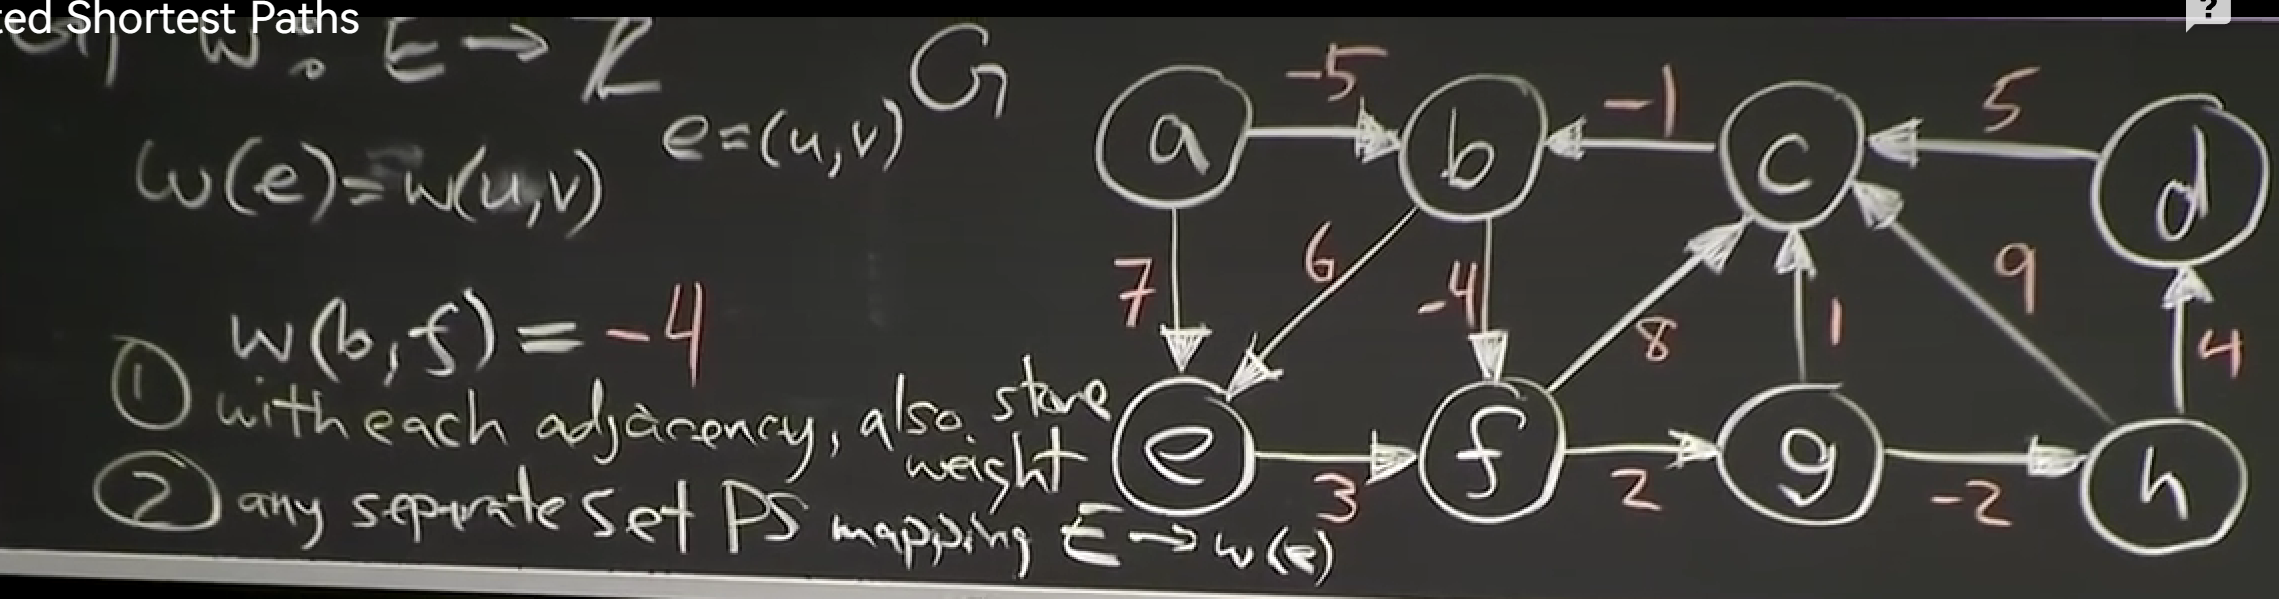 ted Shortest Paths
?
w: E → Z
G
e=(u,v)
w(e)=w(u,v)
w(b,f) = -4
① with each adjacency, also store
weight
② any separate set DS mapping E → w(e)
a -5 b -1 c 5 d
7 6 -4 8 1 9 4
e 3 f 2 g -2 h